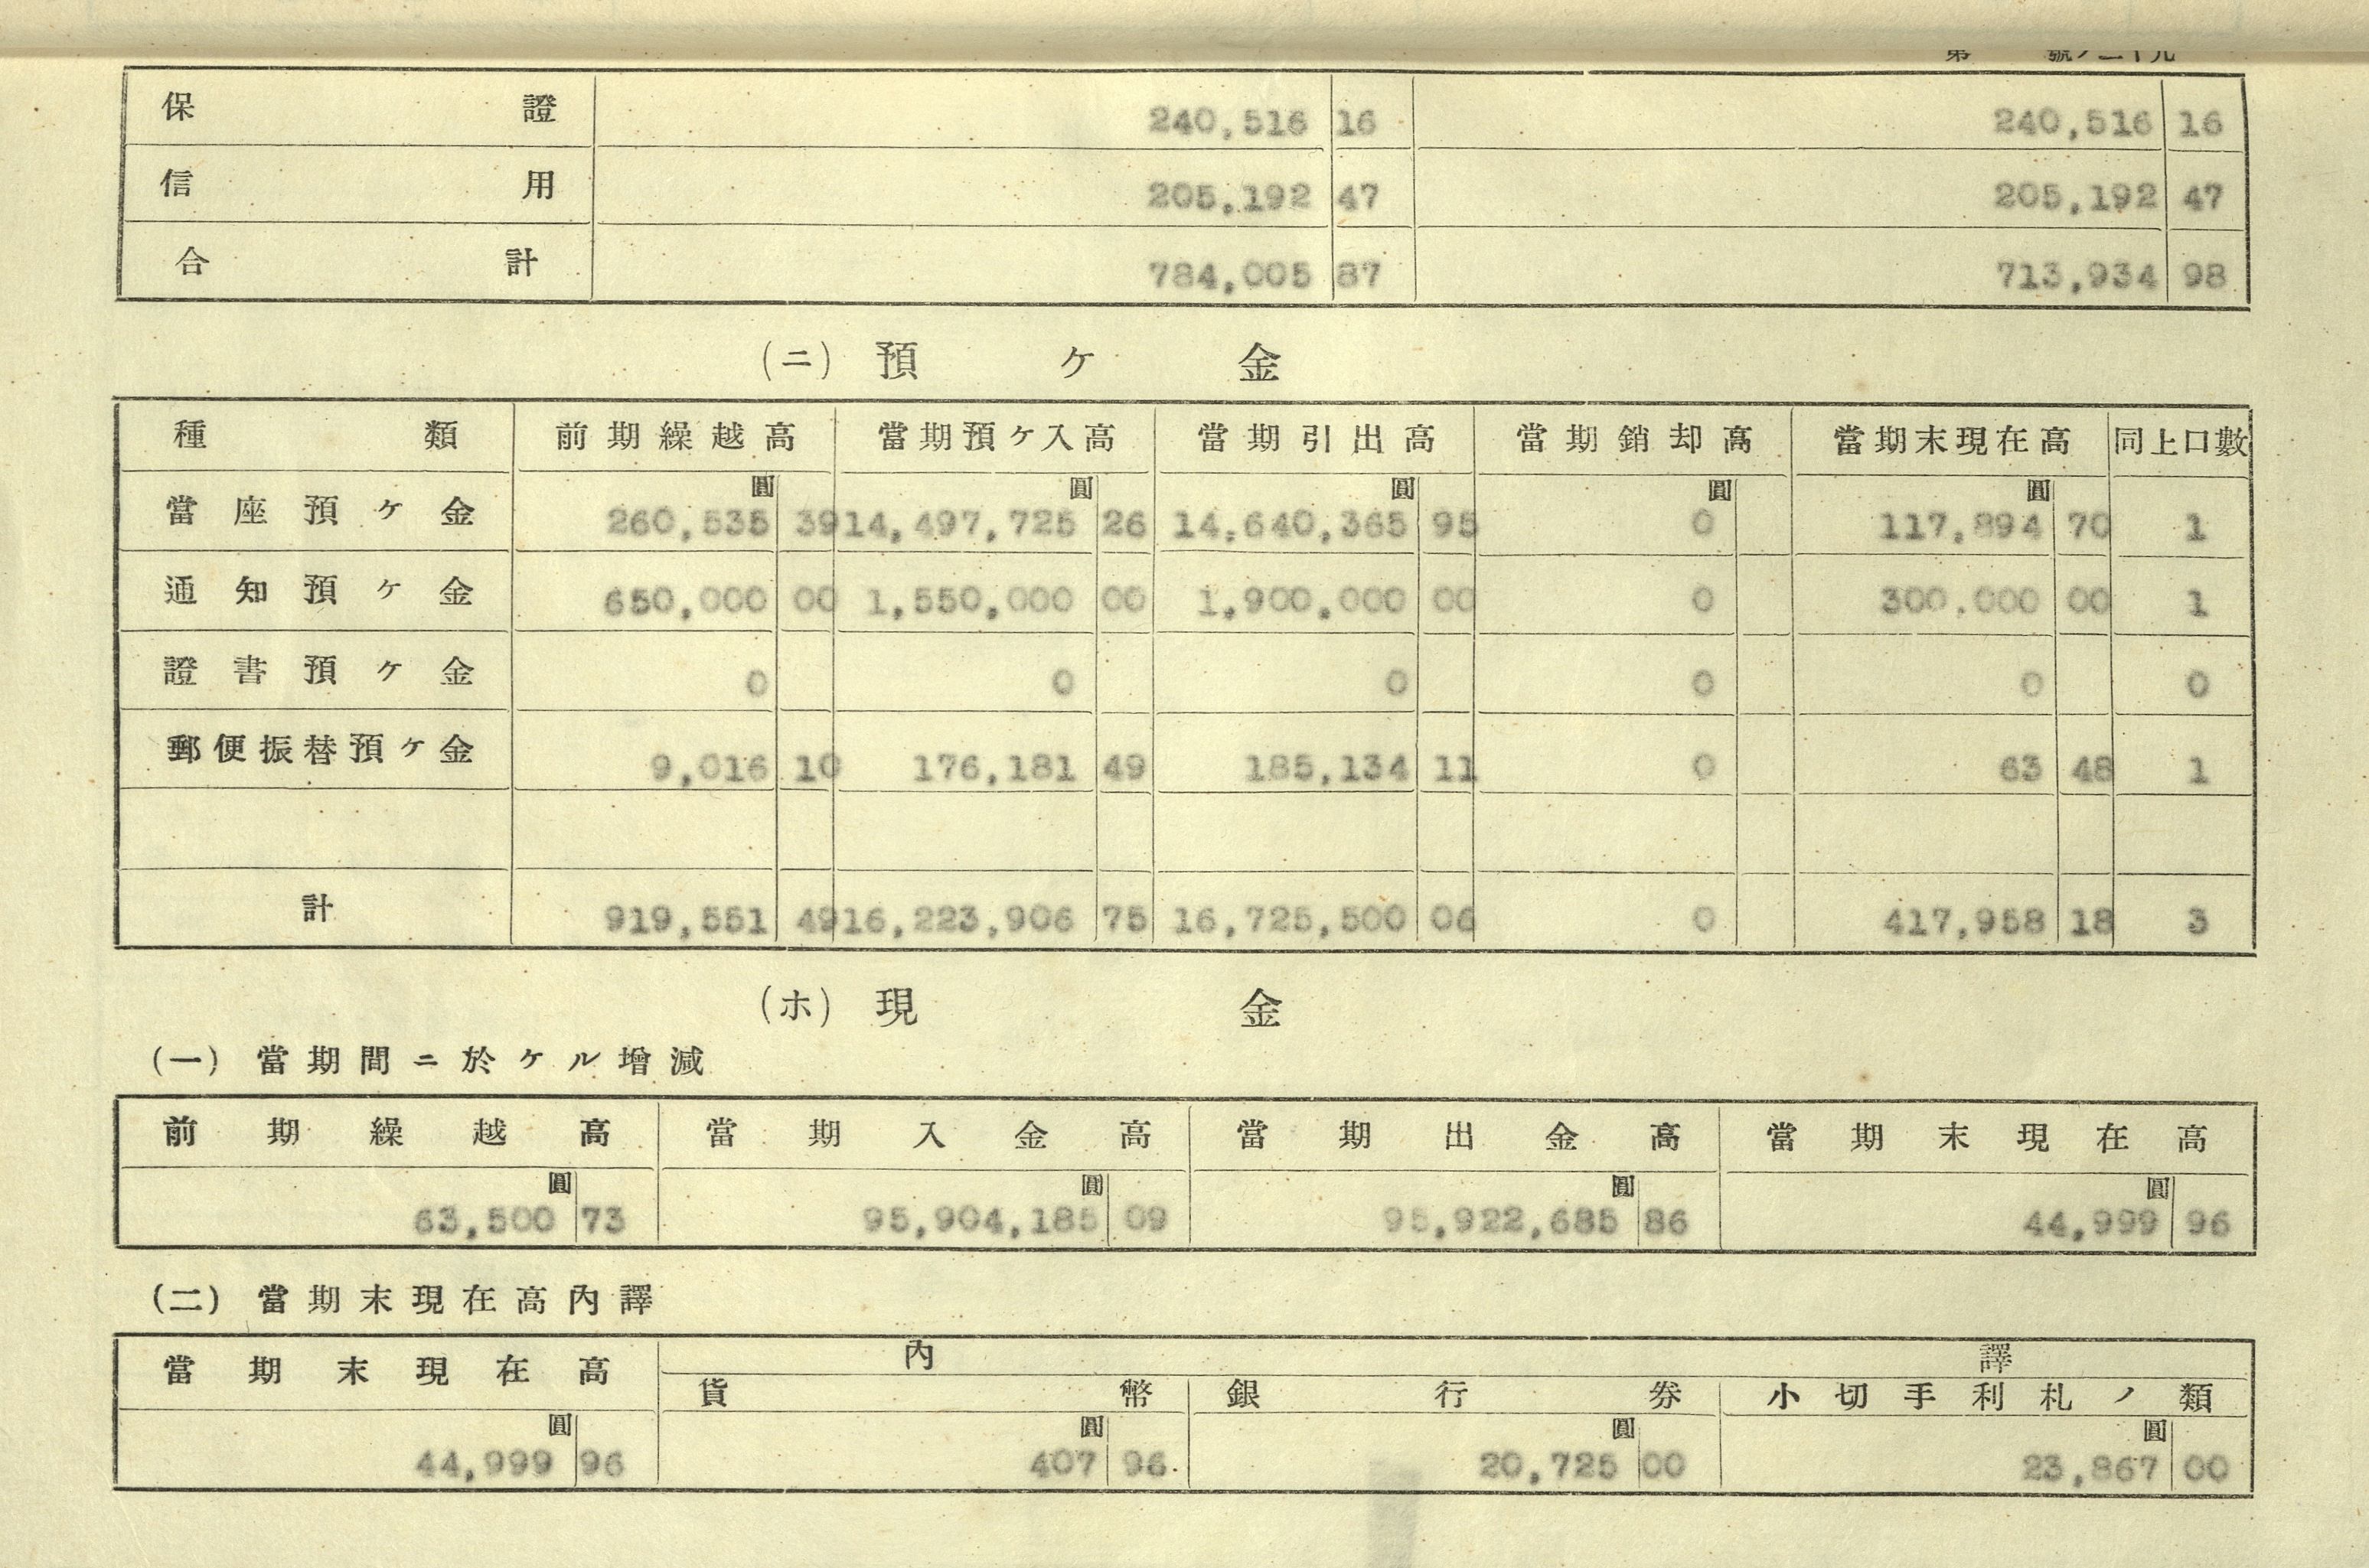 第　號ノ二十九
保證 240,516 16 240,516 16
信用 205,192 47 205,192 47
合計 784,005 87 713,934 98
(ニ) 預ケ金
種類 前期繰越高 當期預ケ入高 當期引出高 當期銷却高 當期末現在高 同上口數
圓 圓 圓 圓 圓
當座預ケ金 260,535 39 14,497,725 26 14,640,365 95 0 117,894 70 1
通知預ケ金 650,000 00 1,550,000 00 1,900,000 00 0 300,000 00 1
證書預ケ金 0 0 0 0 0 0
郵便振替預ケ金 9,016 10 176,181 49 185,134 11 0 63 48 1
計 919,551 49 16,223,906 75 16,725,500 06 0 417,958 18 3
(ホ) 現金
(一) 當期間ニ於ケル增減
前期繰越高 當期入金高 當期出金高 當期末現在高
圓 圓 圓 圓
63,500 73 95,904,185 09 95,922,685 86 44,999 96
(二) 當期末現在高內譯
當期末現在高 內譯
貨幣 銀行券 小切手利札ノ類
圓 圓 圓 圓
44,999 96 407 96 20,725 00 23,867 00